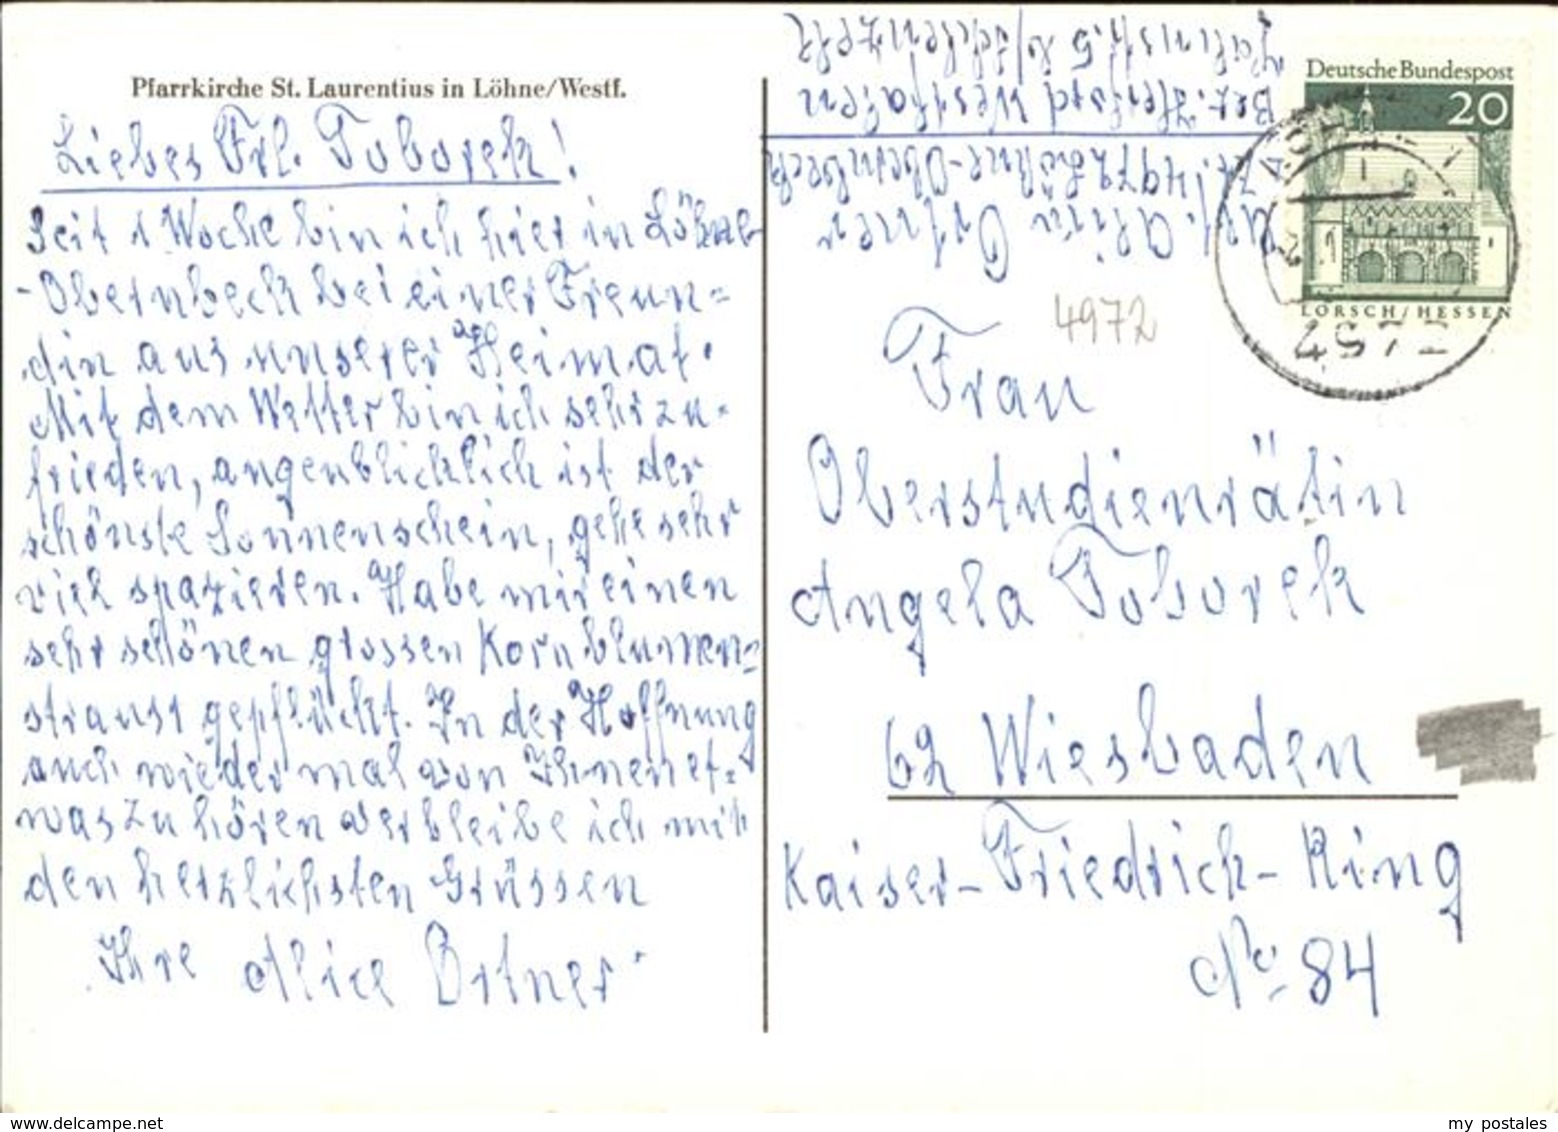 Pfarrkirche St. Laurentius in Löhne/Westf.
Liebes Frl. Toborek!
Seit 1 Woche bin ich hier in Löhne-
-Obernbeck bei einer Freun=
din aus unserer Heimat.
Mit dem Wetter bin ich sehr zu=
frieden, augenblicklich ist der
schönste Sonnenschein, gehe sehr
viel spazieren. Habe mir einen
sehr schönen grossen Kornblumen=
strauss gepflückt. In der Hoffnung
auch wieder mal von Ihnen et=
was zu hören verbleibe ich mit
den herzlichsten Grüssen
Ihre Alice Ortner
Ortner
4972 Löhne-Obernbeck
Bez. Herford Westfalen
Deutsche Bundespost
20
LORSCH/HESSEN
4972
4972
Frau
Oberstudienrätin
Angela Toborek
62 Wiesbaden
Kaiser-Friedrich-Ring
No. 84
my postales